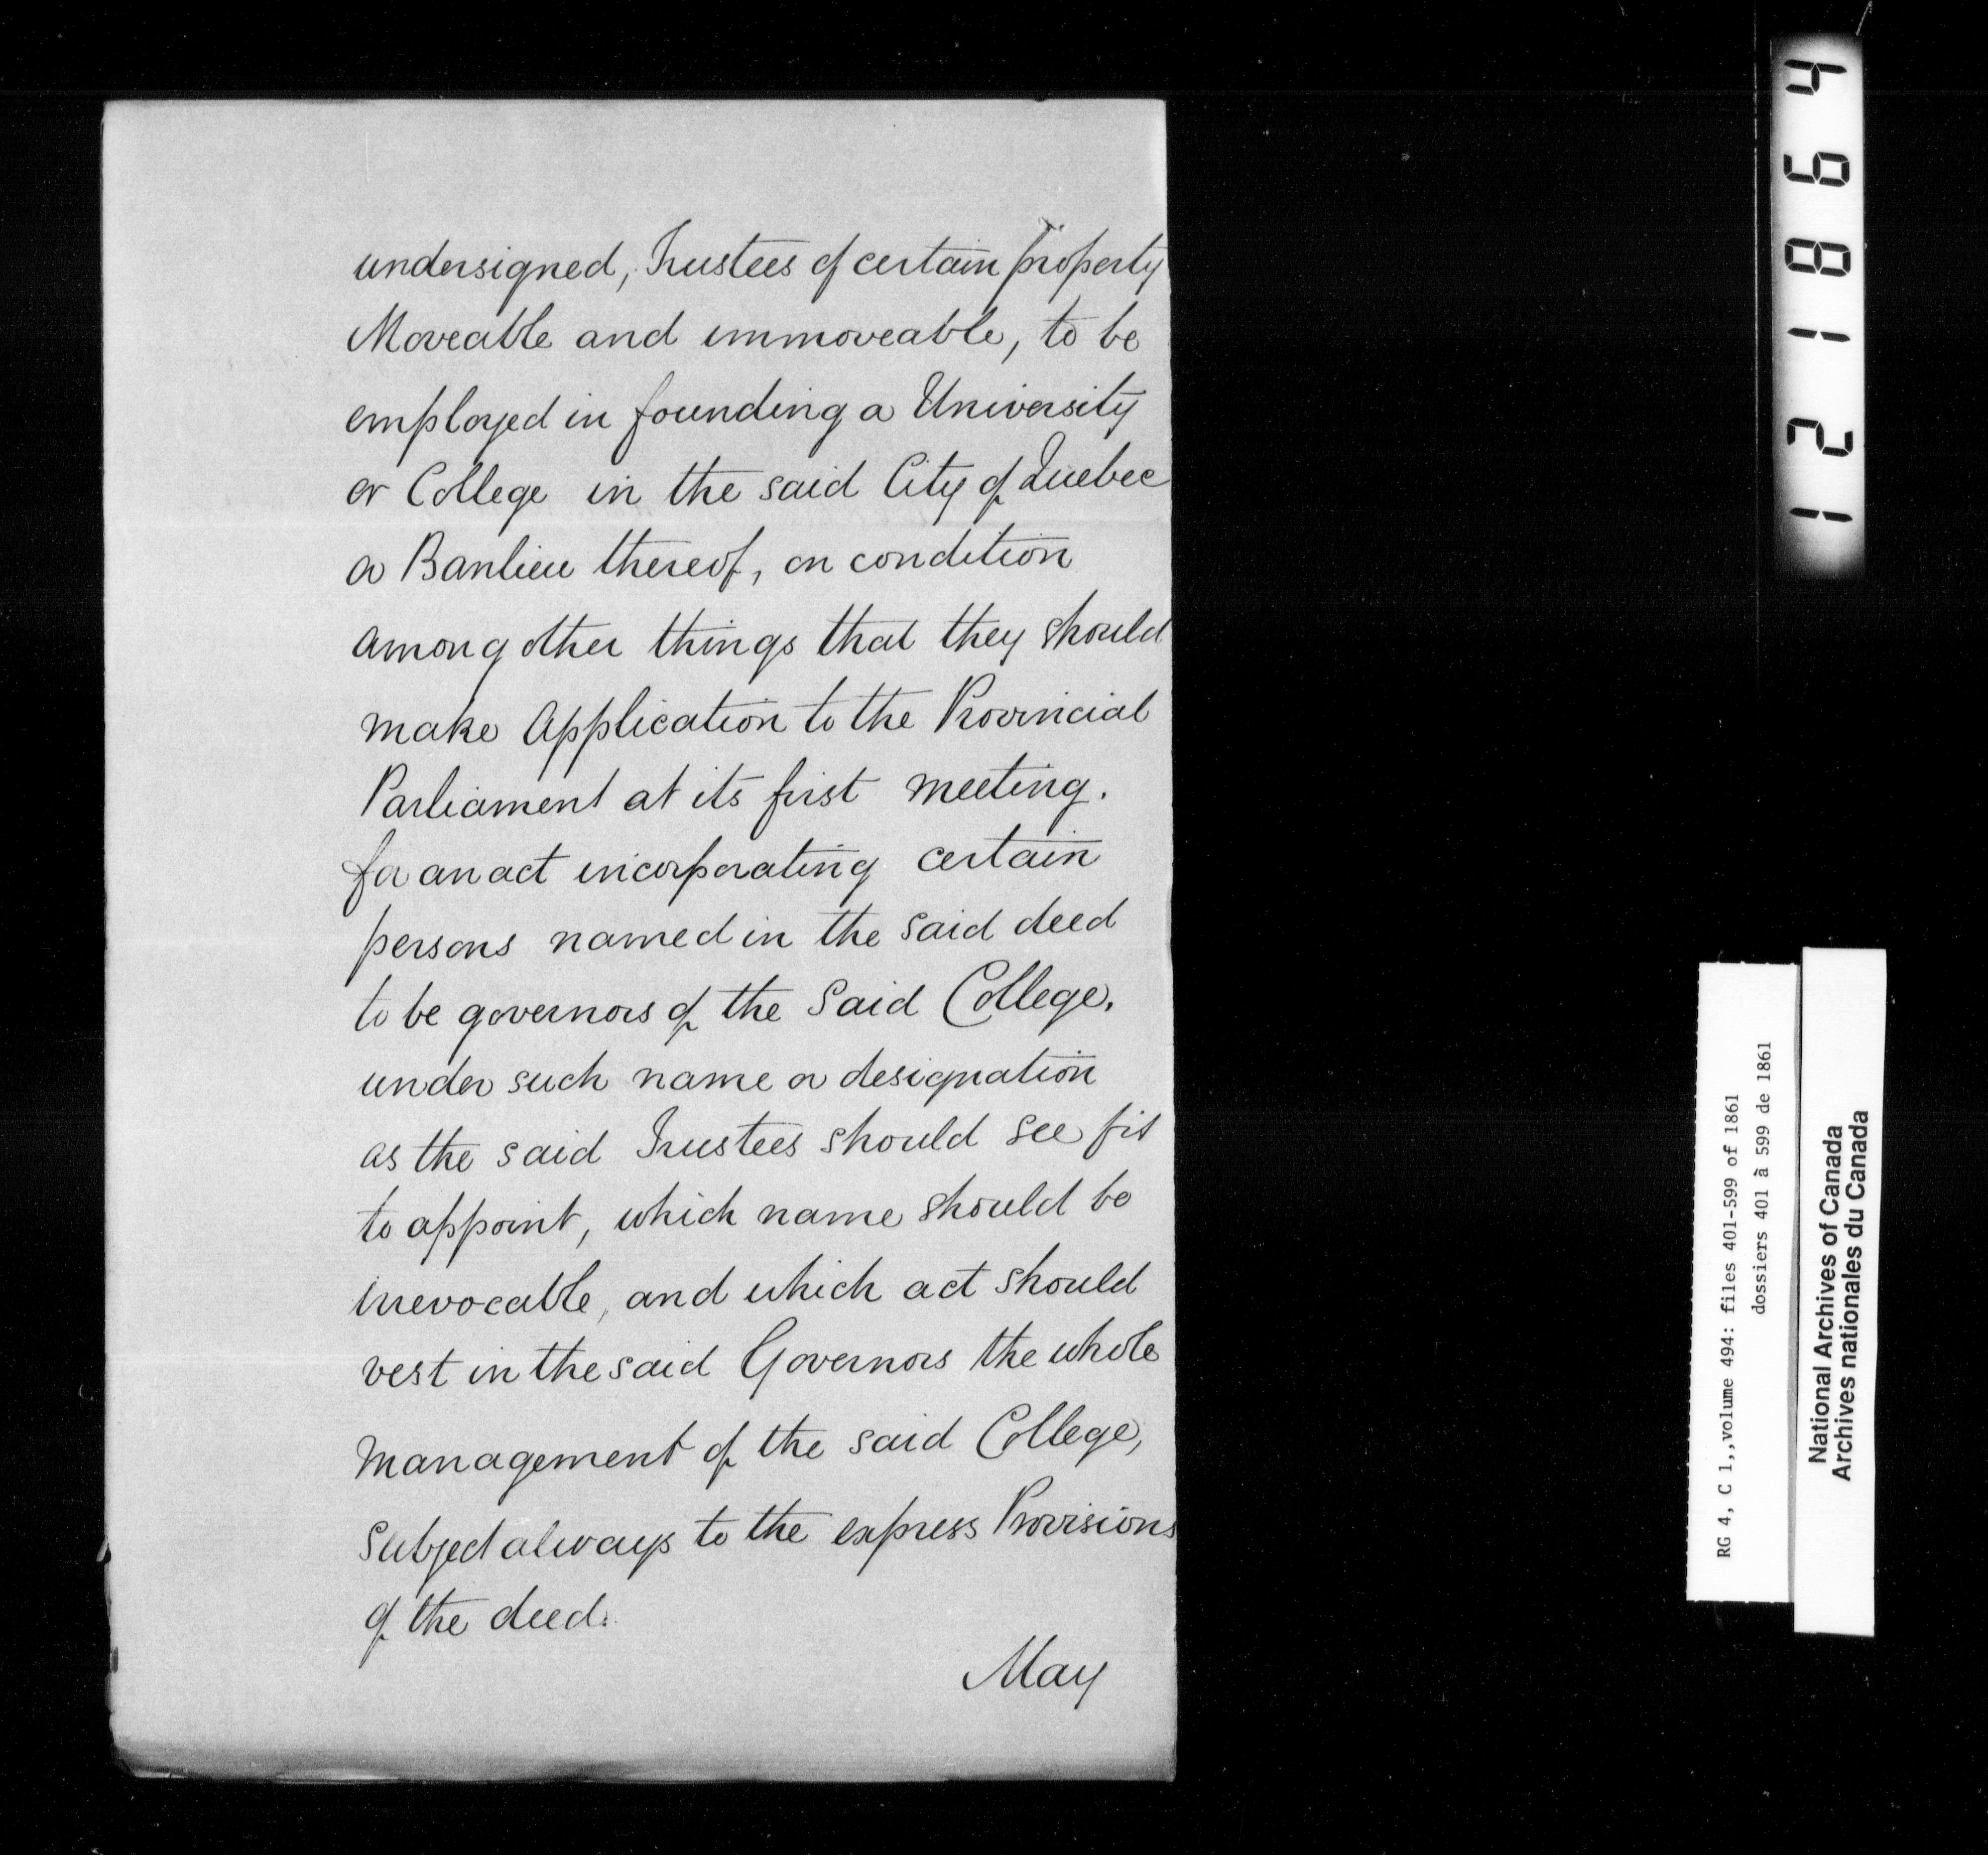 undersigned, Trustees of certain property
Moveable and immoveable, to be
employed in founding a University
or College in the said City of Quebec
or Banlieu thereof, on condition
among other things that they should
make Application to the Provincial
Parliament at its first meeting.
for an act incorporating certain
persons named in the said deed
to be governors of the Said College.
under such name or designation
as the said Trustees should see fit
to appoint, which name should be
irrevocable, and which act should
vest in the said Governors the whole
Management of the said College,
Subject always to the express Provisions
of the deed.
May
121864
RG 4, C 1,,volume 494: files 401-599 of 1861
dossiers 401 à 599 de 1861
National Archives of Canada
Archives nationales du Canada